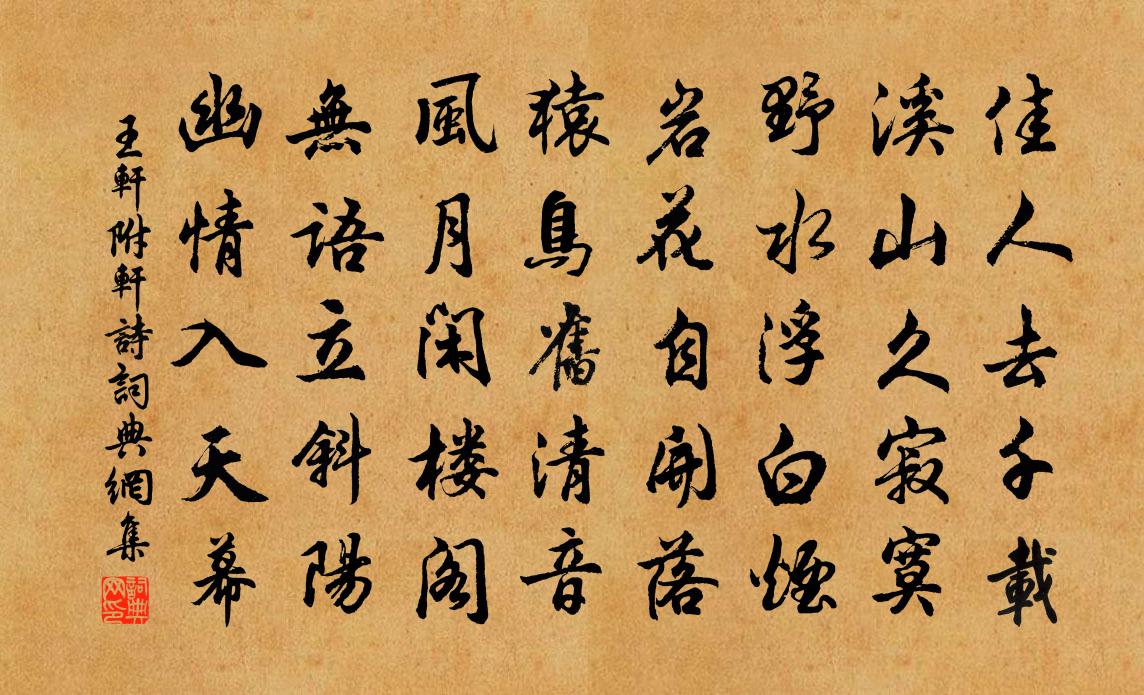 佳人去千載
溪山久寂寞
野水浮白煙
岩花自開落
猿鳥舊清音
風月閑楼閣
無語立斜陽
幽情入天幕
王軒附軒詩詞典網集
詞典网印